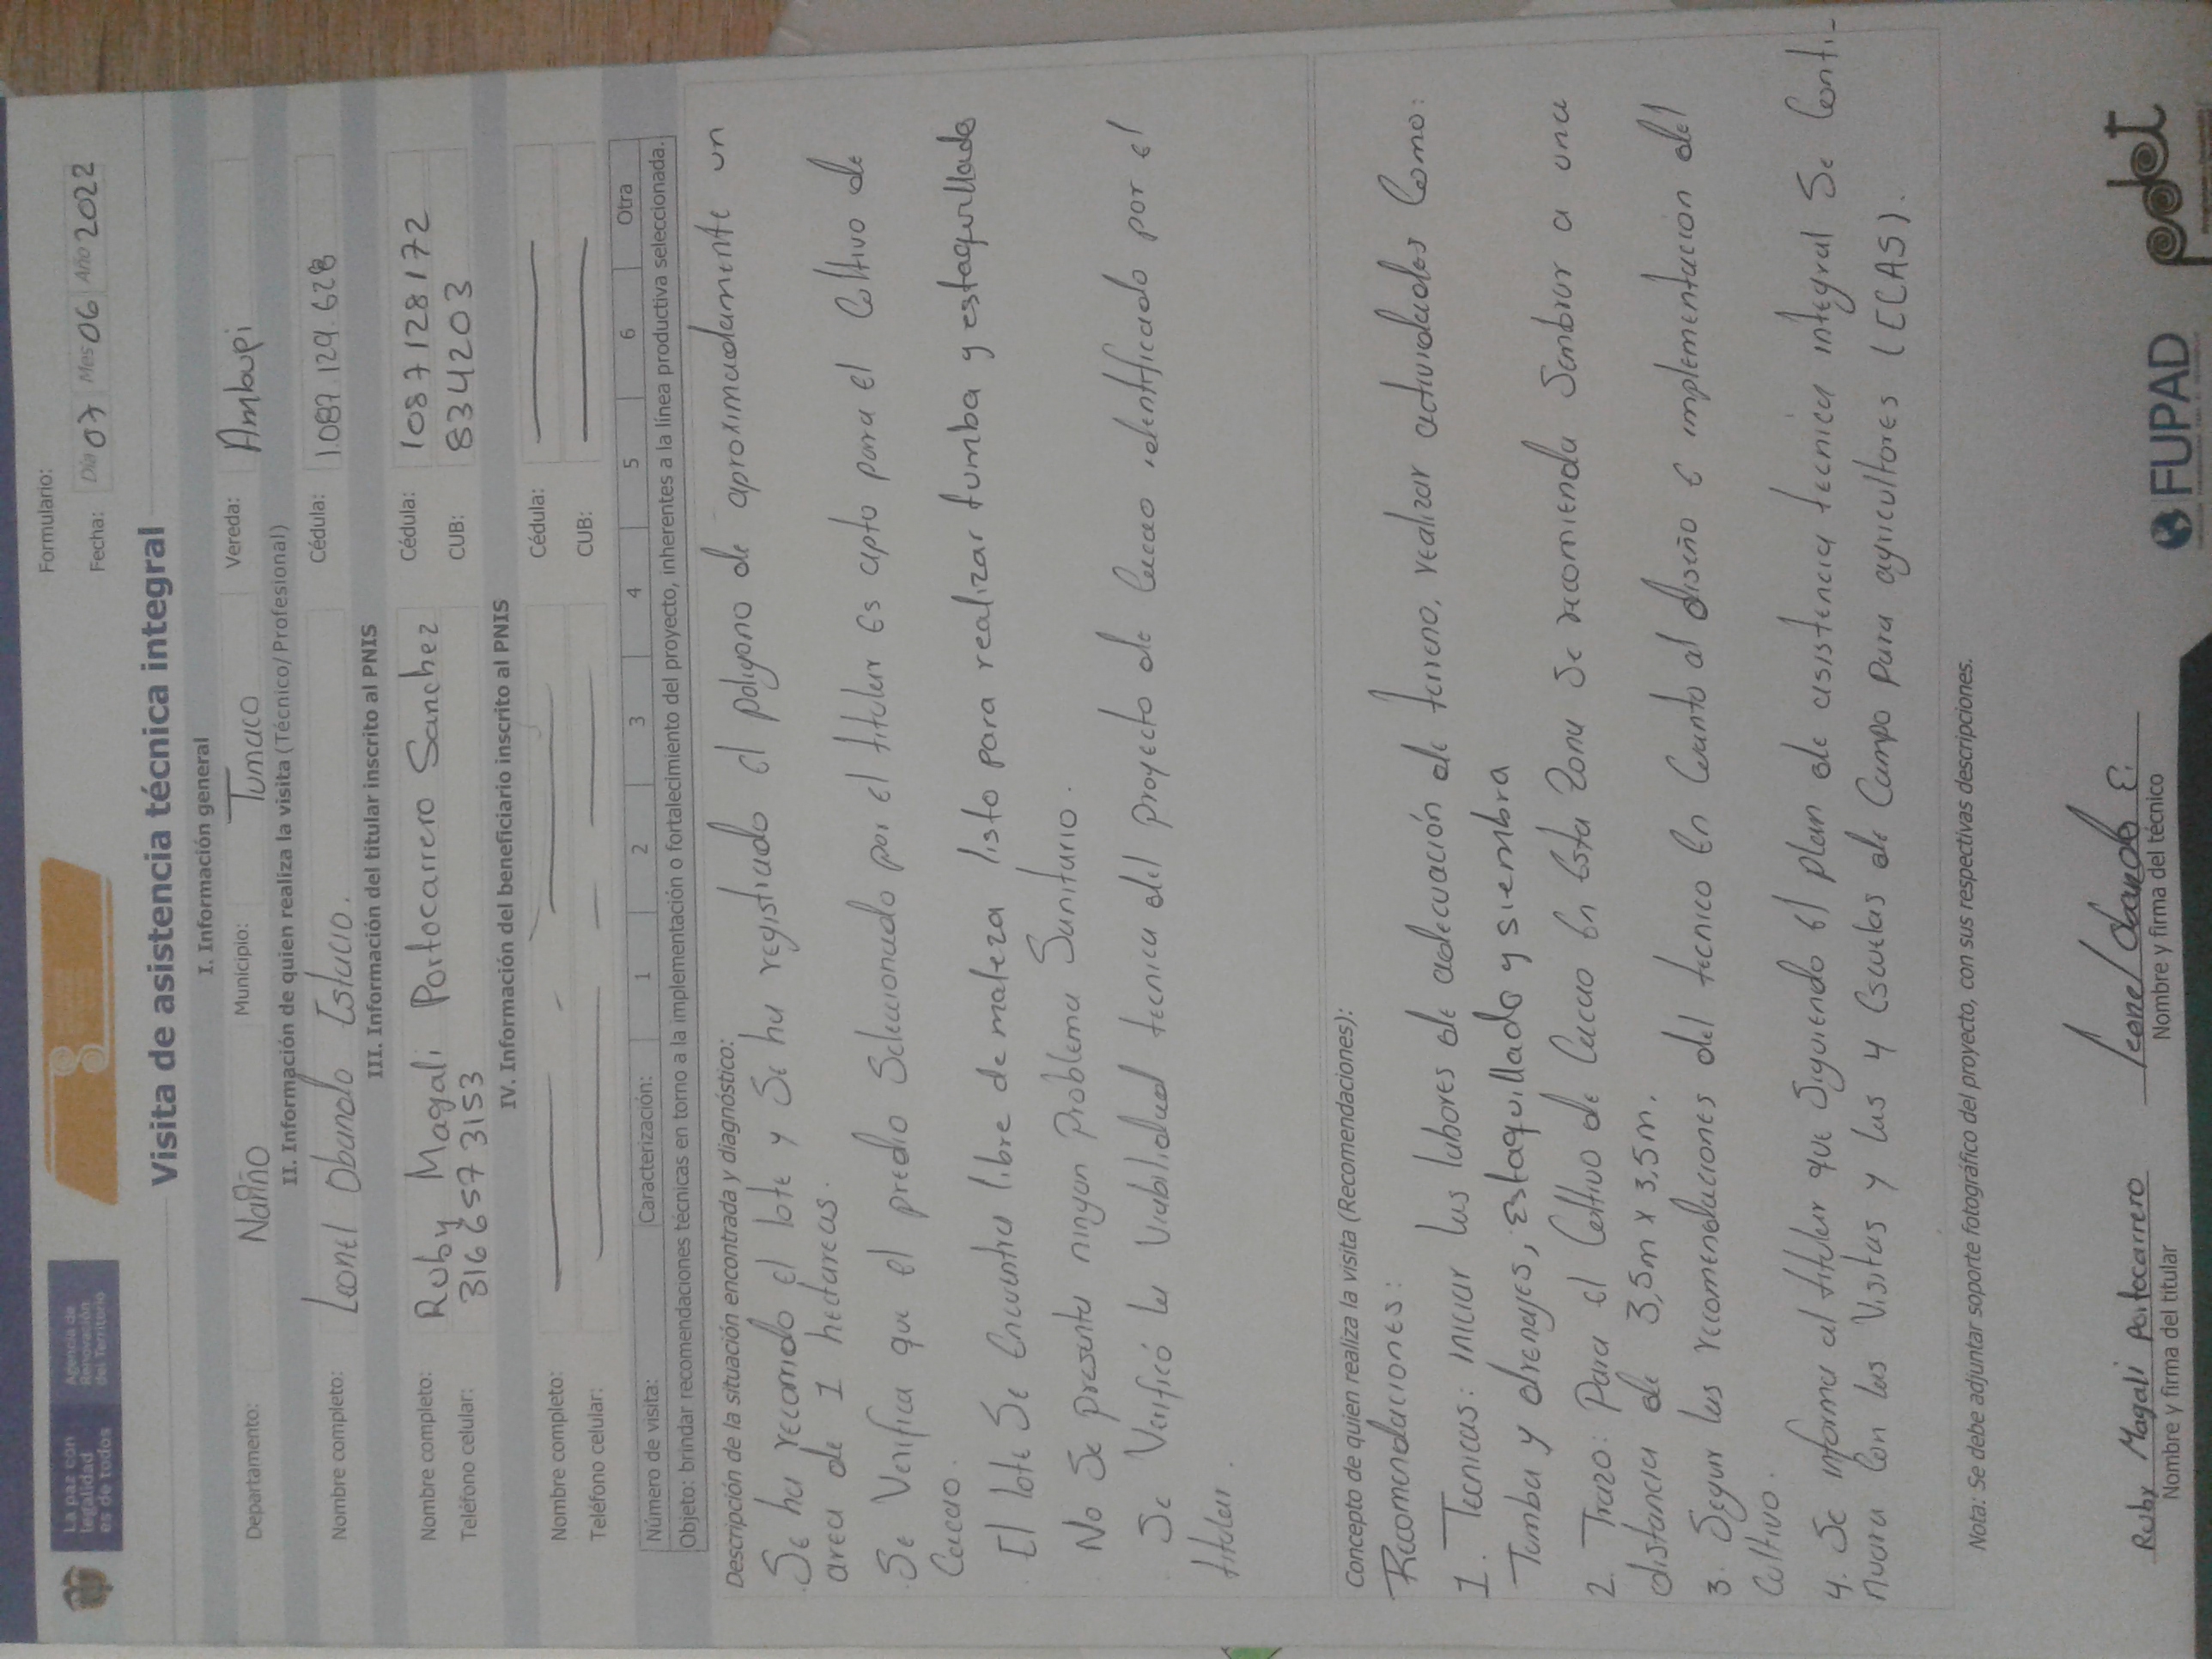 La paz con
legalidad
es de todos
Agencia de
Renovación
del Territorio
Formulario:
Fecha: Día 07 Mes 06 Año 2022
Visita de asistencia técnica integral
I. Información general
Departamento: Nariño Municipio: Tumaco Vereda: Ambupi
II. Información de quien realiza la visita (Técnico/Profesional)
Nombre completo: Leonel Obando Estacio. Cédula: 1.087.124.628
III. Información del titular inscrito al PNIS
Nombre completo: Ruby Magali Portocarrero Sanchez Cédula: 1087128172
Teléfono celular: 3166573153 CUB: 834203
IV. Información del beneficiario inscrito al PNIS
Nombre completo: Cédula:
Teléfono celular: CUB:
Número de visita: Caracterización: 1 2 3 4 5 6 Otra
Objeto: brindar recomendaciones técnicas en torno a la implementación o fortalecimiento del proyecto, inherentes a la línea productiva seleccionada.
Descripción de la situación encontrada y diagnóstico:
. Se ha recorrido el lote y Se ha registrado el polygono de aproximadamente un
area de 1 hectareas.
. Se Verifica que el predio Seleccionado por el titular es apto para el Cultivo de
Cacao.
. El lote Se Encuentra libre de maleza listo para realizar tumba y estaquillado
. No Se presenta ningun problema Sanitario.
. Se Verificó la Viabilidad tecnica del proyecto de Cacao identificado por el
titular.
Concepto de quien realiza la visita (Recomendaciones):
Recomendaciones:
1. Tecnicas: iniciar las labores de adecuación de terreno, realizar actividades Como:
Tumba y drenajes, Estaquillado y siembra
2. Trazo: Para el Cultivo de Cacao en esta Zona Se recomienda Sembrar a una
distancia de 3,5m x 3,5m.
3. Seguir las recomendaciones del tecnico en Cuanto al diseño e implementacion del
Cultivo.
4. Se informa al titular que Siguiendo el plan de asistencia tecnica integral Se Conti-
nuara Con las Visitas y las 4 Escuelas de Campo para agricultores (ECAS).
Nota: Se debe adjuntar soporte fotográfico del proyecto, con sus respectivas descripciones.
Ruby Magali Portocarrero Leonel Obando E.
Nombre y firma del titular Nombre y firma del técnico
FUPAD pdet